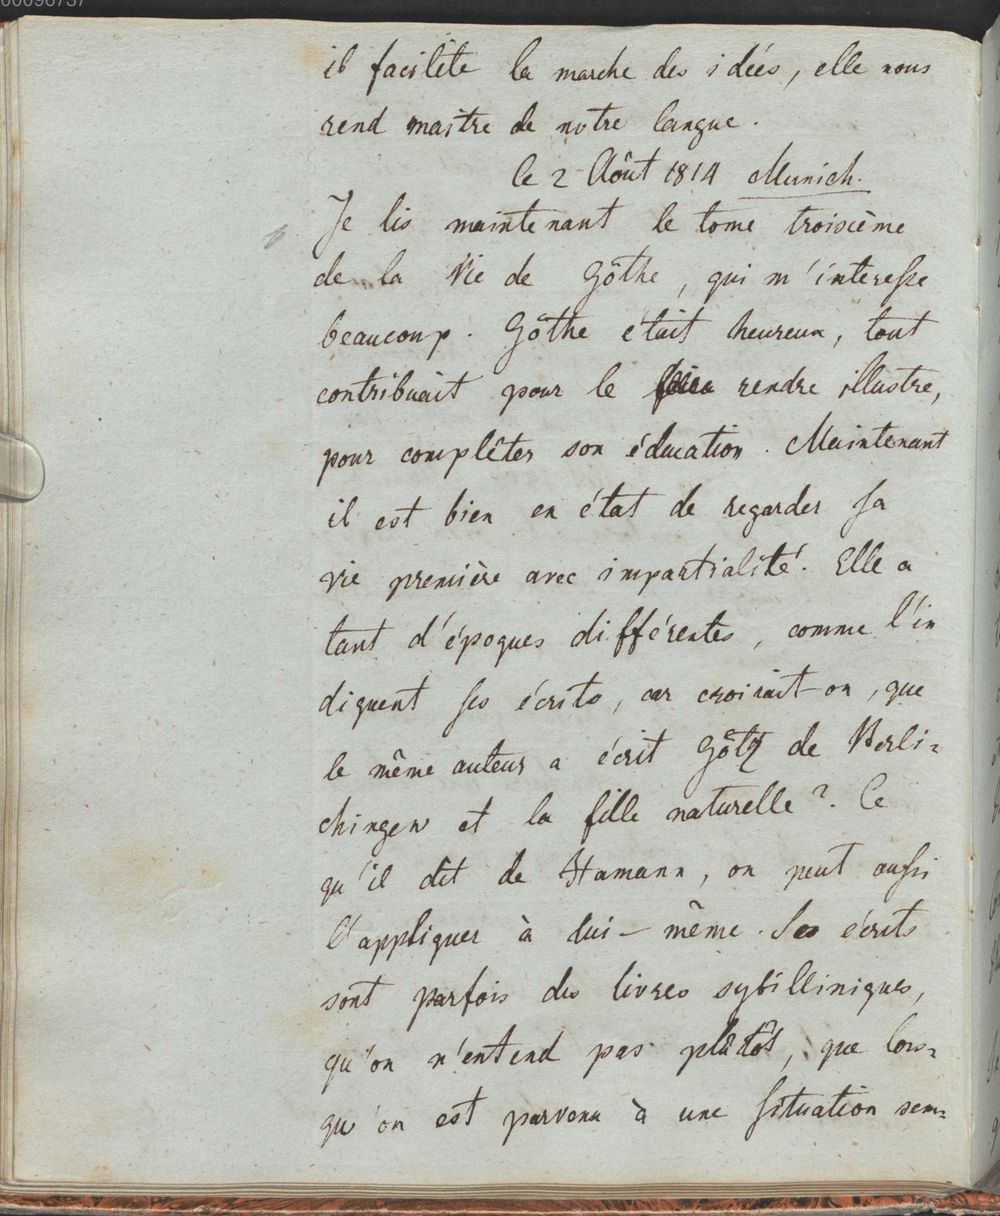 00096737
il facilite la marche des idées, elle nous
rend maitre de notre langue.
le 2 Août 1814 Munich.
Je lis maintenant le tome troisième
de la Vie de Göthe, qui m'interesse
beaucoup. Göthe était heureux, tout
contribuait pour le rendre illustre,
pour complêter son éducation. Maintenant
il est bien en état de regarder sa
vie première avec impartialité. Elle a
tant d'époques différentes, comme l'in
diquent ses écrits, car croirait-on, que
le même auteur a écrit Götz de Berli=
chingen et la fille naturelle? Ce
qu'il dit de Hamann, on peut aussi
l'appliquer à lui-même. Ses écrits
sont parfois des livres sybilliniques,
qu'on n'entend pas plutôt, que lors=
qu'on est parvenu à une situation sem=